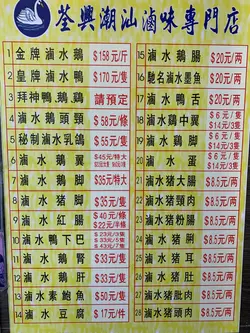 荃興潮汕滷味專門店
1 金牌滷水鵝 $158元/斤
2 皇牌滷水鴨 $170元/隻
3 拜神鴨,鵝,鷄 請預定
4 滷水鵝頭頸 $58元/條
5 秘制滷水乳鴿 $55元/隻
6 滷水鵝翼 $45元/特大
7 滷水鵝脚 $35元/特大
8 滷水豬脚 $35元/隻
9 滷水紅腸 $40元/條 $22元/半條
10 滷水鴨下巴 $23元/3隻 $33元/5隻 $43元/7隻
11 滷水鵝腎 $33元/隻
12 滷水鵝肝 $33元/隻
13 滷水素鮑魚 $50元/隻
14 滷水豆腐 $17元/件
15 滷水鵝腸 $20元/两
16 馳名滷水墨魚 $20元/两
17 滷水鴨舌 $20元/两
18 滷水鷄中翼 $6元/隻 $14元/3隻
19 滷水鷄脚 $6元/隻 $14元/3隻
20 滷水蛋 $6元/隻 $14元/3隻
21 滷水豬大腸 $8.5元/两
22 滷水豬頸肉 $8.5元/两
23 滷水豬粉腸 $8.5元/两
24 滷水豬脷 $8.5元/两
25 滷水豬耳 $8.5元/两
26 滷水豬肚 $8.5元/两
27 滷水豬肶肉 $8.5元/两
28 滷水豬頭肉 $8.5元/两